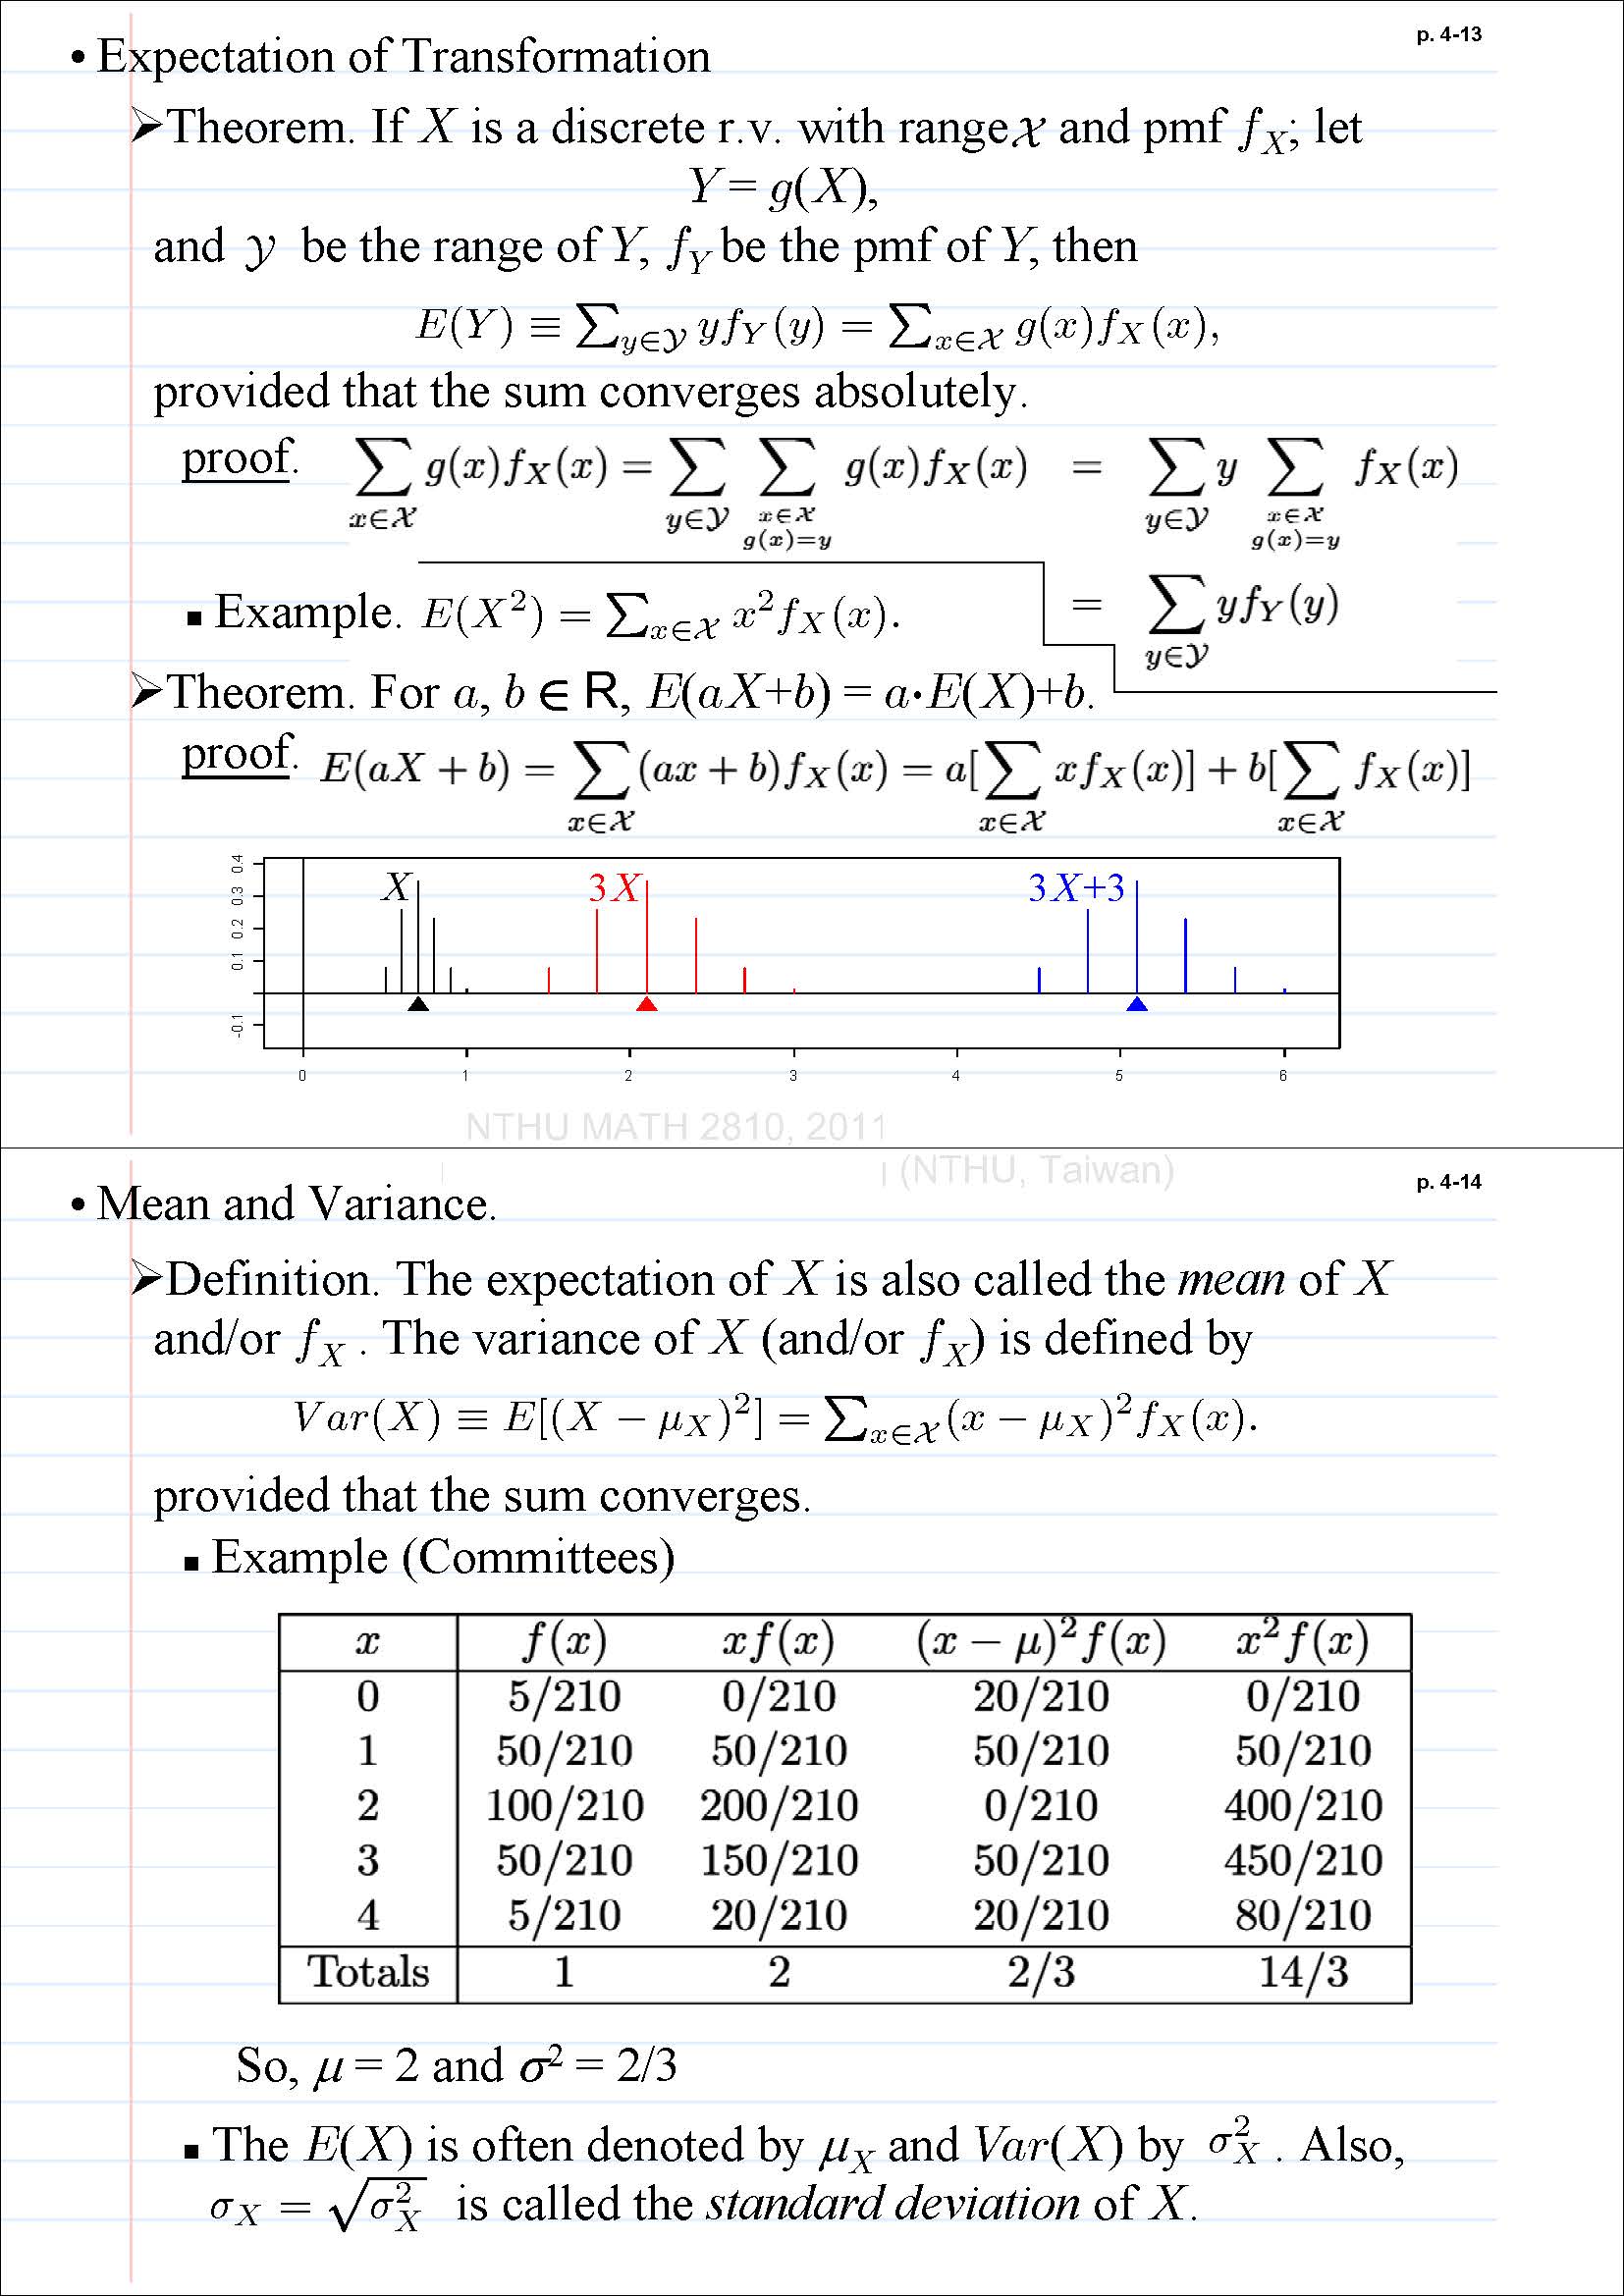 p. 4-13
• Expectation of Transformation
➢Theorem. If X is a discrete r.v. with range 𝒳 and pmf f_X; let
Y = g(X),
and 𝒴 be the range of Y, f_Y be the pmf of Y, then
E(Y) ≡ ∑_{y∈𝒴} y f_Y(y) = ∑_{x∈𝒳} g(x) f_X(x),
provided that the sum converges absolutely.
proof. ∑_{x∈𝒳} g(x) f_X(x) = ∑_{y∈𝒴} ∑_{x∈𝒳, g(x)=y} g(x) f_X(x) = ∑_{y∈𝒴} y ∑_{x∈𝒳, g(x)=y} f_X(x)
= ∑_{y∈𝒴} y f_Y(y)
▪ Example. E(X²) = ∑_{x∈𝒳} x² f_X(x).
➢Theorem. For a, b ∈ R, E(aX+b) = a·E(X)+b.
proof. E(aX + b) = ∑_{x∈𝒳} (ax + b) f_X(x) = a[∑_{x∈𝒳} x f_X(x)] + b[∑_{x∈𝒳} f_X(x)]
0.4
0.3
0.2
0.1
-0.1
X 3X 3X+3
0 1 2 3 4 5 6
NTHU MATH 2810, 2011
(NTHU, Taiwan)
p. 4-14
• Mean and Variance.
➢Definition. The expectation of X is also called the mean of X
and/or f_X . The variance of X (and/or f_X) is defined by
Var(X) ≡ E[(X − μ_X)²] = ∑_{x∈𝒳} (x − μ_X)² f_X(x).
provided that the sum converges.
▪ Example (Committees)
x f(x) xf(x) (x − μ)² f(x) x² f(x)
0 5/210 0/210 20/210 0/210
1 50/210 50/210 50/210 50/210
2 100/210 200/210 0/210 400/210
3 50/210 150/210 50/210 450/210
4 5/210 20/210 20/210 80/210
Totals 1 2 2/3 14/3
So, μ = 2 and σ² = 2/3
▪ The E(X) is often denoted by μ_X and Var(X) by σ²_X . Also,
σ_X = √σ²_X is called the standard deviation of X.